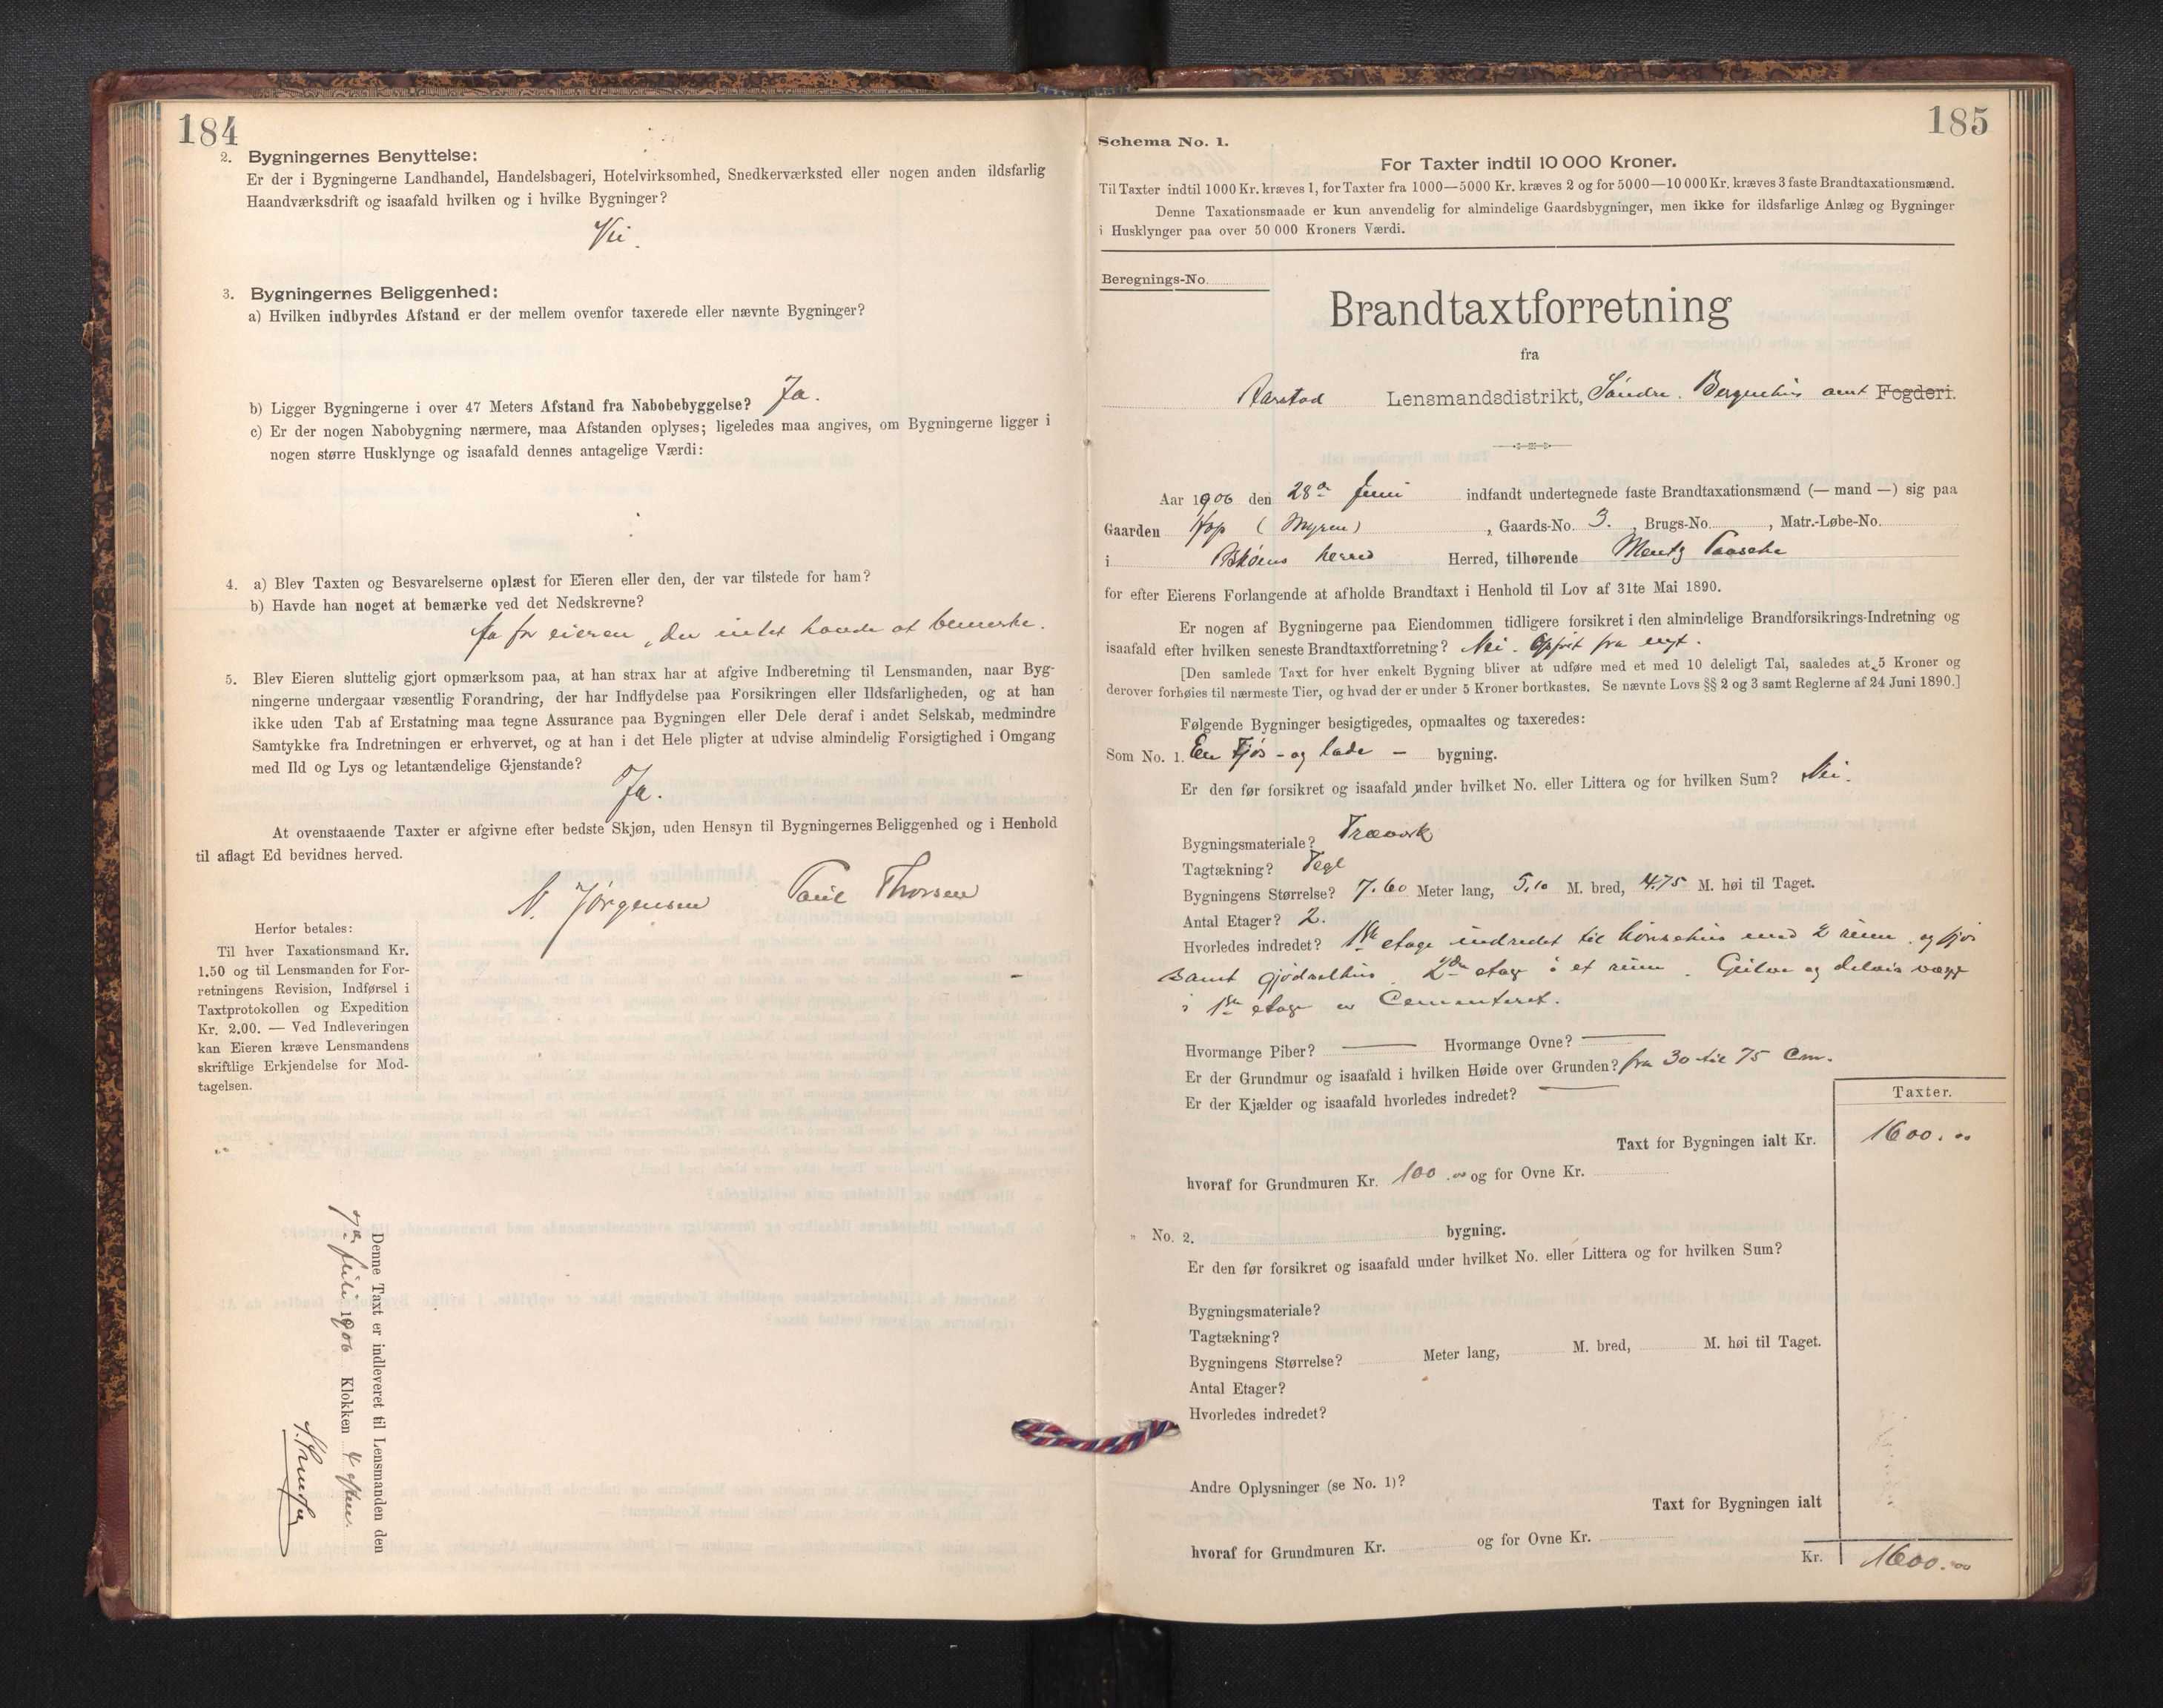 184
2. Bygningernes Benyttelse:
Er der i Bygningerne Landhandel, Handelsbageri, Hotelvirksomhed, Snedkerværksted eller nogen anden ildsfarlig
Haandværksdrift og isaafald hvilken og i hvilke Bygninger?
Nei.
3. Bygningernes Beliggenhed:
a) Hvilken indbyrdes Afstand er der mellem ovenfor taxerede eller nævnte Bygninger?
b) Ligger Bygningerne i over 47 Meters Afstand fra Nabobebyggelse? Ja.
c) Er der nogen Nabobygning nærmere, maa Afstanden oplyses; ligeledes maa angives, om Bygningerne ligger i
nogen større Husklynge og isaafald dennes antagelige Værdi:
4. a) Blev Taxten og Besvarelserne oplæst for Eieren eller den, der var tilstede for ham?
b) Havde han noget at bemærke ved det Nedskrevne?
Ja for eieren, der intet havde at bemerke.
5. Blev Eieren sluttelig gjort opmærksom paa, at han strax har at afgive Indberetning til Lensmanden, naar Byg-
ningerne undergaar væsentlig Forandring, der har Indflydelse paa Forsikringen eller Ildsfarligheden, og at han
ikke uden Tab af Erstatning maa tegne Assurance paa Bygningen eller Dele deraf i andet Selskab, medmindre
Samtykke fra Indretningen er erhvervet, og at han i det Hele pligter at udvise almindelig Forsigtighed i Omgang
med Ild og Lys og letantændelige Gjenstande?
Ja.
At ovenstaaende Taxter er afgivne efter bedste Skjøn, uden Hensyn til Bygningernes Beliggenhed og i Henhold
til aflagt Ed bevidnes herved.
N. Jørgensen Paul Thorsen
Herfor betales:
Til hver Taxationsmand Kr.
1.50 og til Lensmanden for For-
retningens Revision, Indførsel i
Taxtprotokollen og Expedition
Kr. 2.00. — Ved Indleveringen
kan Eieren kræve Lensmandens
skriftlige Erkjendelse for Mod-
tagelsen.
Denne Taxt er indleveret til Lensmanden den
7de juli 1906 Klokken 4 efterm.
185
Schema No. 1.
For Taxter indtil 10 000 Kroner.
Til Taxter indtil 1000 Kr. kræves 1, for Taxter fra 1000—5000 Kr. kræves 2 og for 5000—10 000 Kr. kræves 3 faste Brandtaxationsmænd.
Denne Taxationsmaade er kun anvendelig for almindelige Gaardsbygninger, men ikke for ildsfarlige Anlæg og Bygninger
i Husklynger paa over 50 000 Kroners Værdi.
Beregnings-No.
Brandtaxtforretning
fra
Aarstad Lensmandsdistrikt, Søndre Bergenhus amt Fogderi.
Aar 1906 den 28de Juni indfandt undertegnede faste Brandtaxationsmænd (— mand —) sig paa
Gaarden Hop (Myren), Gaards-No. 3., Brugs-No. , Matr.-Løbe-No.
i Askøens herred Herred, tilhørende Mentz Paasche
for efter Eierens Forlangende at afholde Brandtaxt i Henhold til Lov af 31te Mai 1890.
Er nogen af Bygningerne paa Eiendommen tidligere forsikret i den almindelige Brandforsikrings-Indretning og
isaafald efter hvilken seneste Brandtaxtforretning? Nei. Opført fra nyt.
[Den samlede Taxt for hver enkelt Bygning bliver at udføre med et med 10 deleligt Tal, saaledes at 5 Kroner og
derover forhøies til nærmeste Tier, og hvad der er under 5 Kroner bortkastes. Se nævnte Lovs §§ 2 og 3 samt Reglerne af 24 Juni 1890.]
Følgende Bygninger besigtigedes, opmaaltes og taxeredes:
Som No. 1. En Fjøs- og lade - bygning.
Er den før forsikret og isaafald under hvilket No. eller Littera og for hvilken Sum? Nei.
Bygningsmateriale? Træverk
Tagtækning? Tegl
Bygningens Størrelse? 7.60 Meter lang, 5.10 M. bred, 4.75 M. høi til Taget.
Antal Etager? 2.
Hvorledes indredet? 1ste etage indredet til hønsehus med 2 rum og fjøs
samt gjødselhus. 2den etage i et rum. Gulve og delvis vægge
i 1ste etage er Cementeret.
Hvormange Piber? — Hvormange Ovne? —
Er der Grundmur og isaafald i hvilken Høide over Grunden? fra 30 til 75 Cm.
Er der Kjælder og isaafald hvorledes indredet? —
Taxter.
Taxt for Bygningen ialt Kr. 1600.00
hvoraf for Grundmuren Kr. 100.00 og for Ovne Kr.
" No. 2. bygning.
Er den før forsikret og isaafald under hvilket No. eller Littera og for hvilken Sum?
Bygningsmateriale?
Tagtækning?
Bygningens Størrelse? Meter lang, M. bred, M. høi til Taget.
Antal Etager?
Hvorledes indredet?
Andre Oplysninger (se No. 1)?
Taxt for Bygningen ialt
hvoraf for Grundmuren Kr. og for Ovne Kr.
Kr. 1600.00